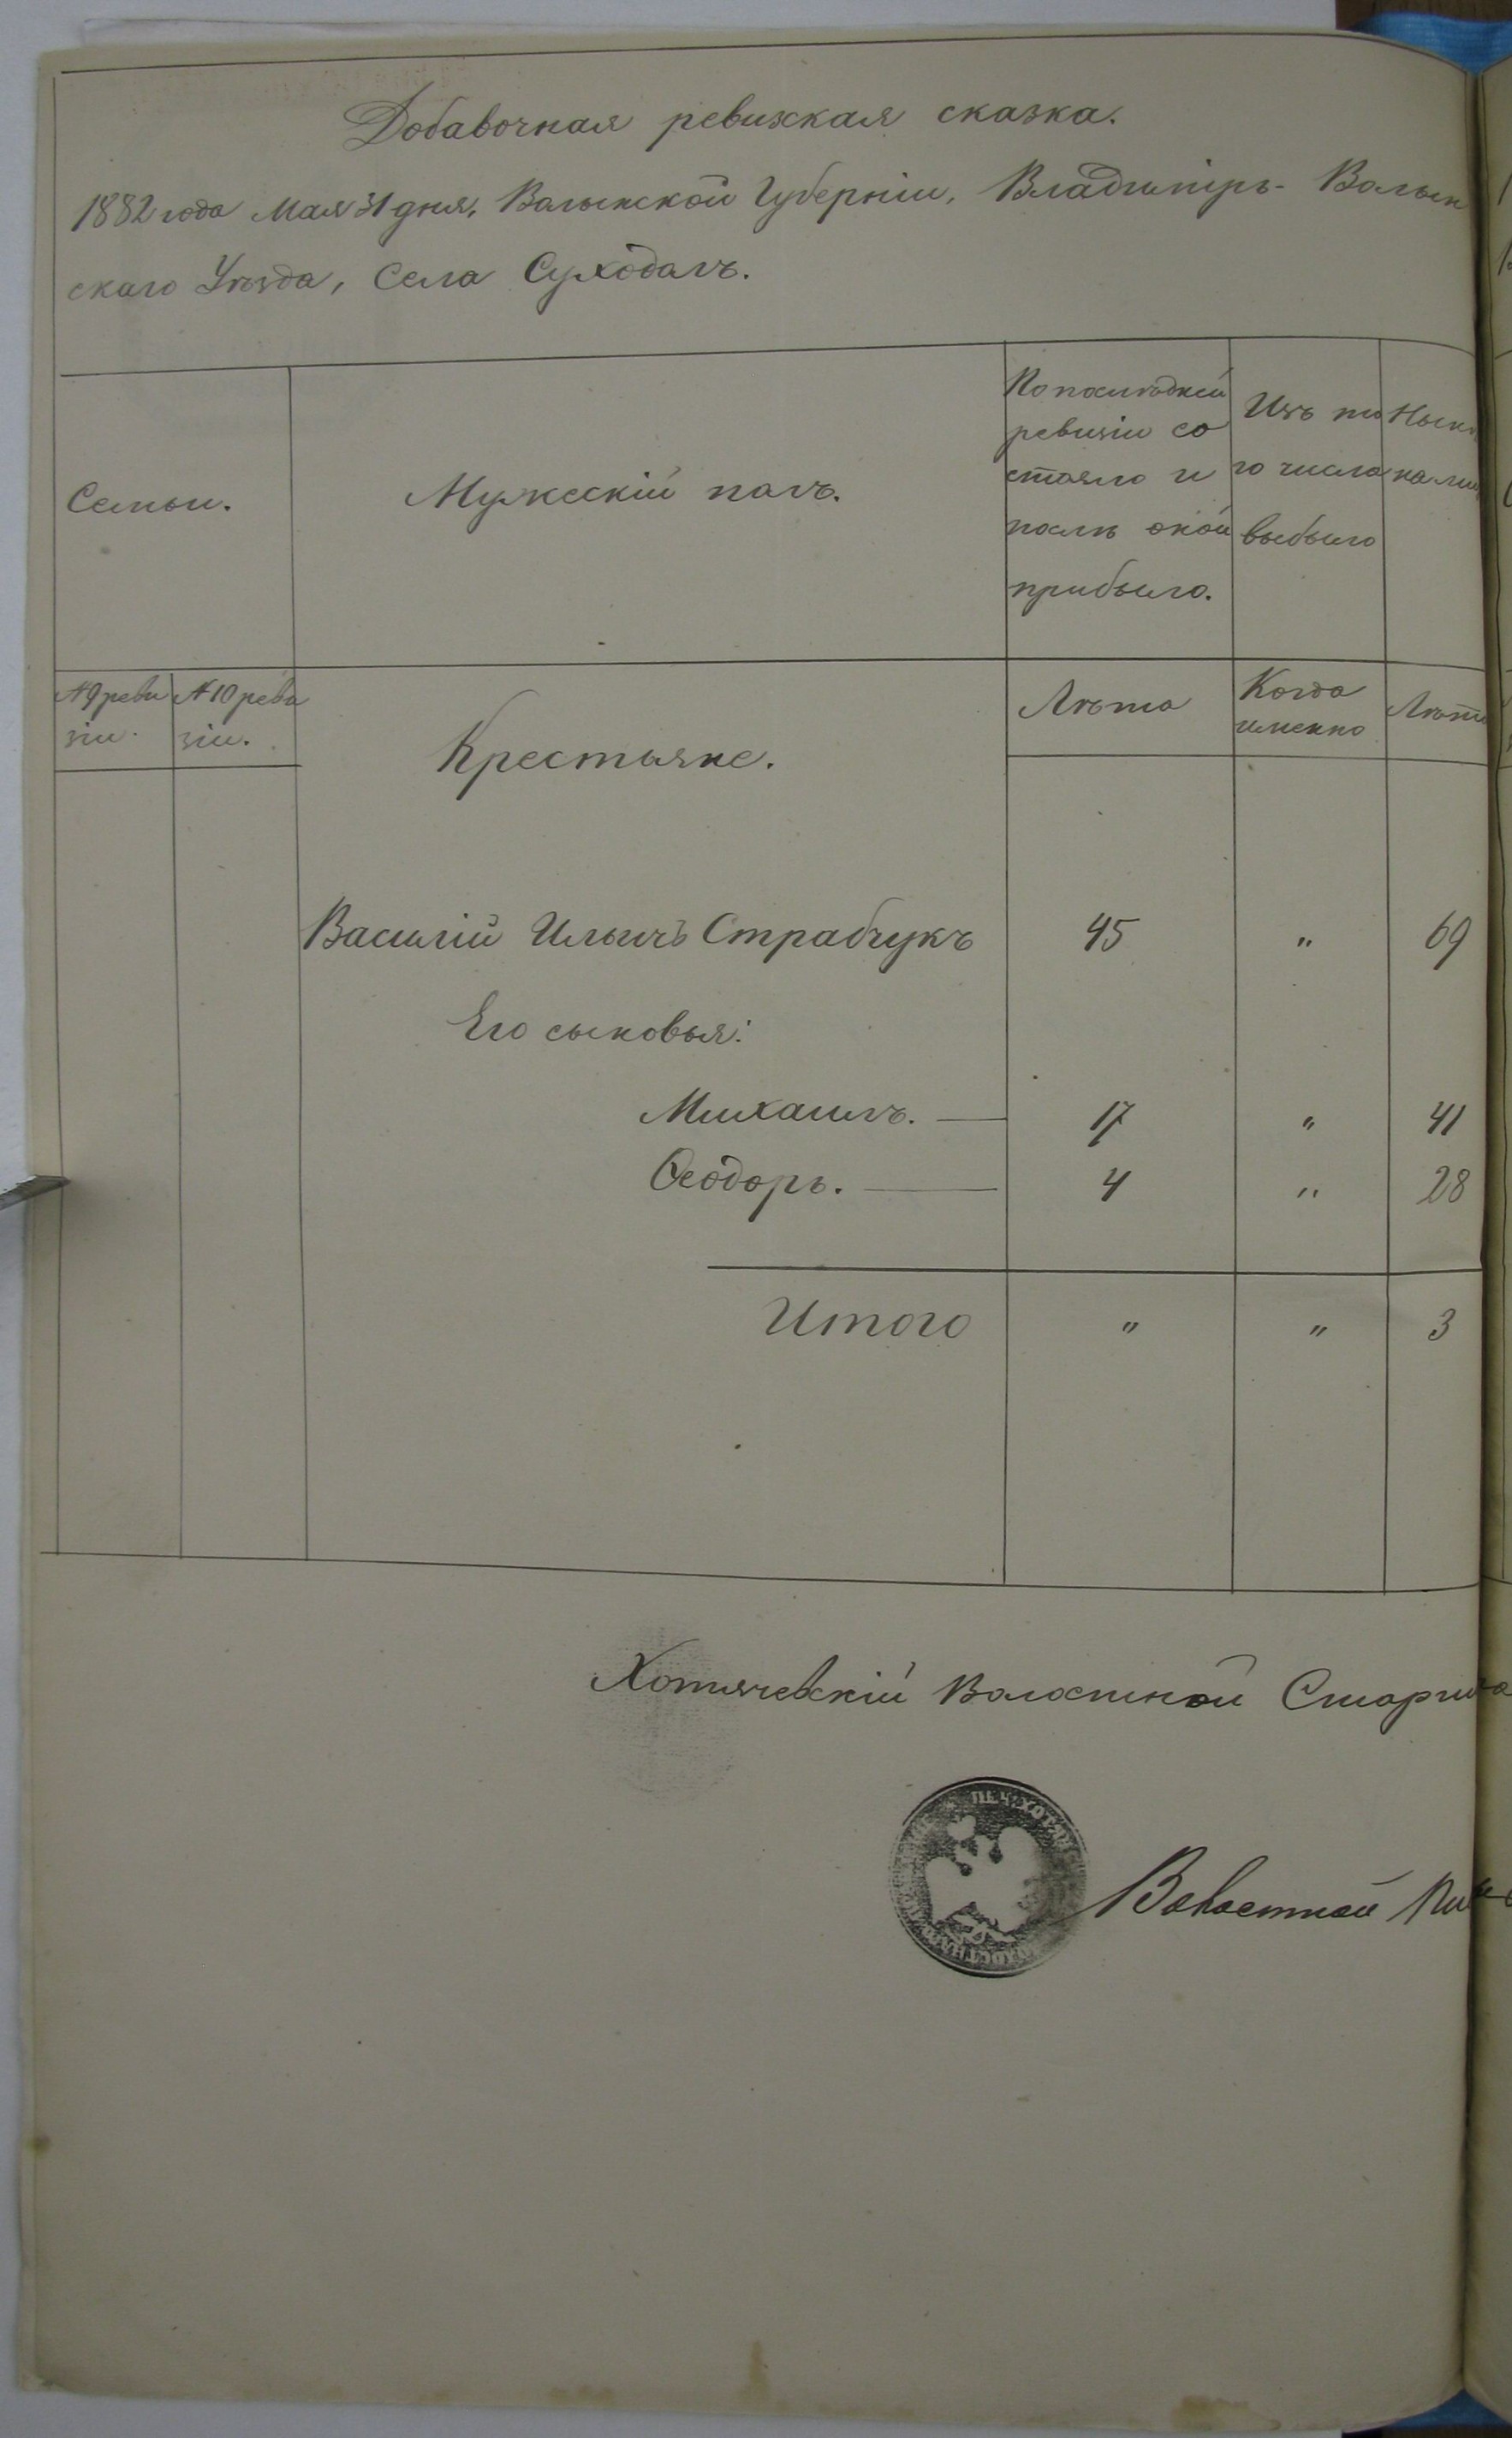 Добавочная ревизская сказка.
1882 года Мая 31 дня, Волынской Губерніи, Владиміръ-Волын
скаго Уѣзда, Села Суходолъ.
Семьи.
Мужескій полъ.
По послѣдней
ревизіи со
стояло и
послѣ оной
прибыло.
Изъ то
го числа
выбыло
Нынѣ
на ли
№ 9 реви
зіи.
№ 10 реви
зіи.
Крестьяне.
Лѣта
Когда
именно
Лѣта
Василій Ильичъ Страбчукъ 45 " 69
Его сыновья:
Михаилъ. — 17 " 41
Ѳеодоръ. — 4 " 28
Итого " " 3
Хотячевскій Волостной Старшина
Волостной